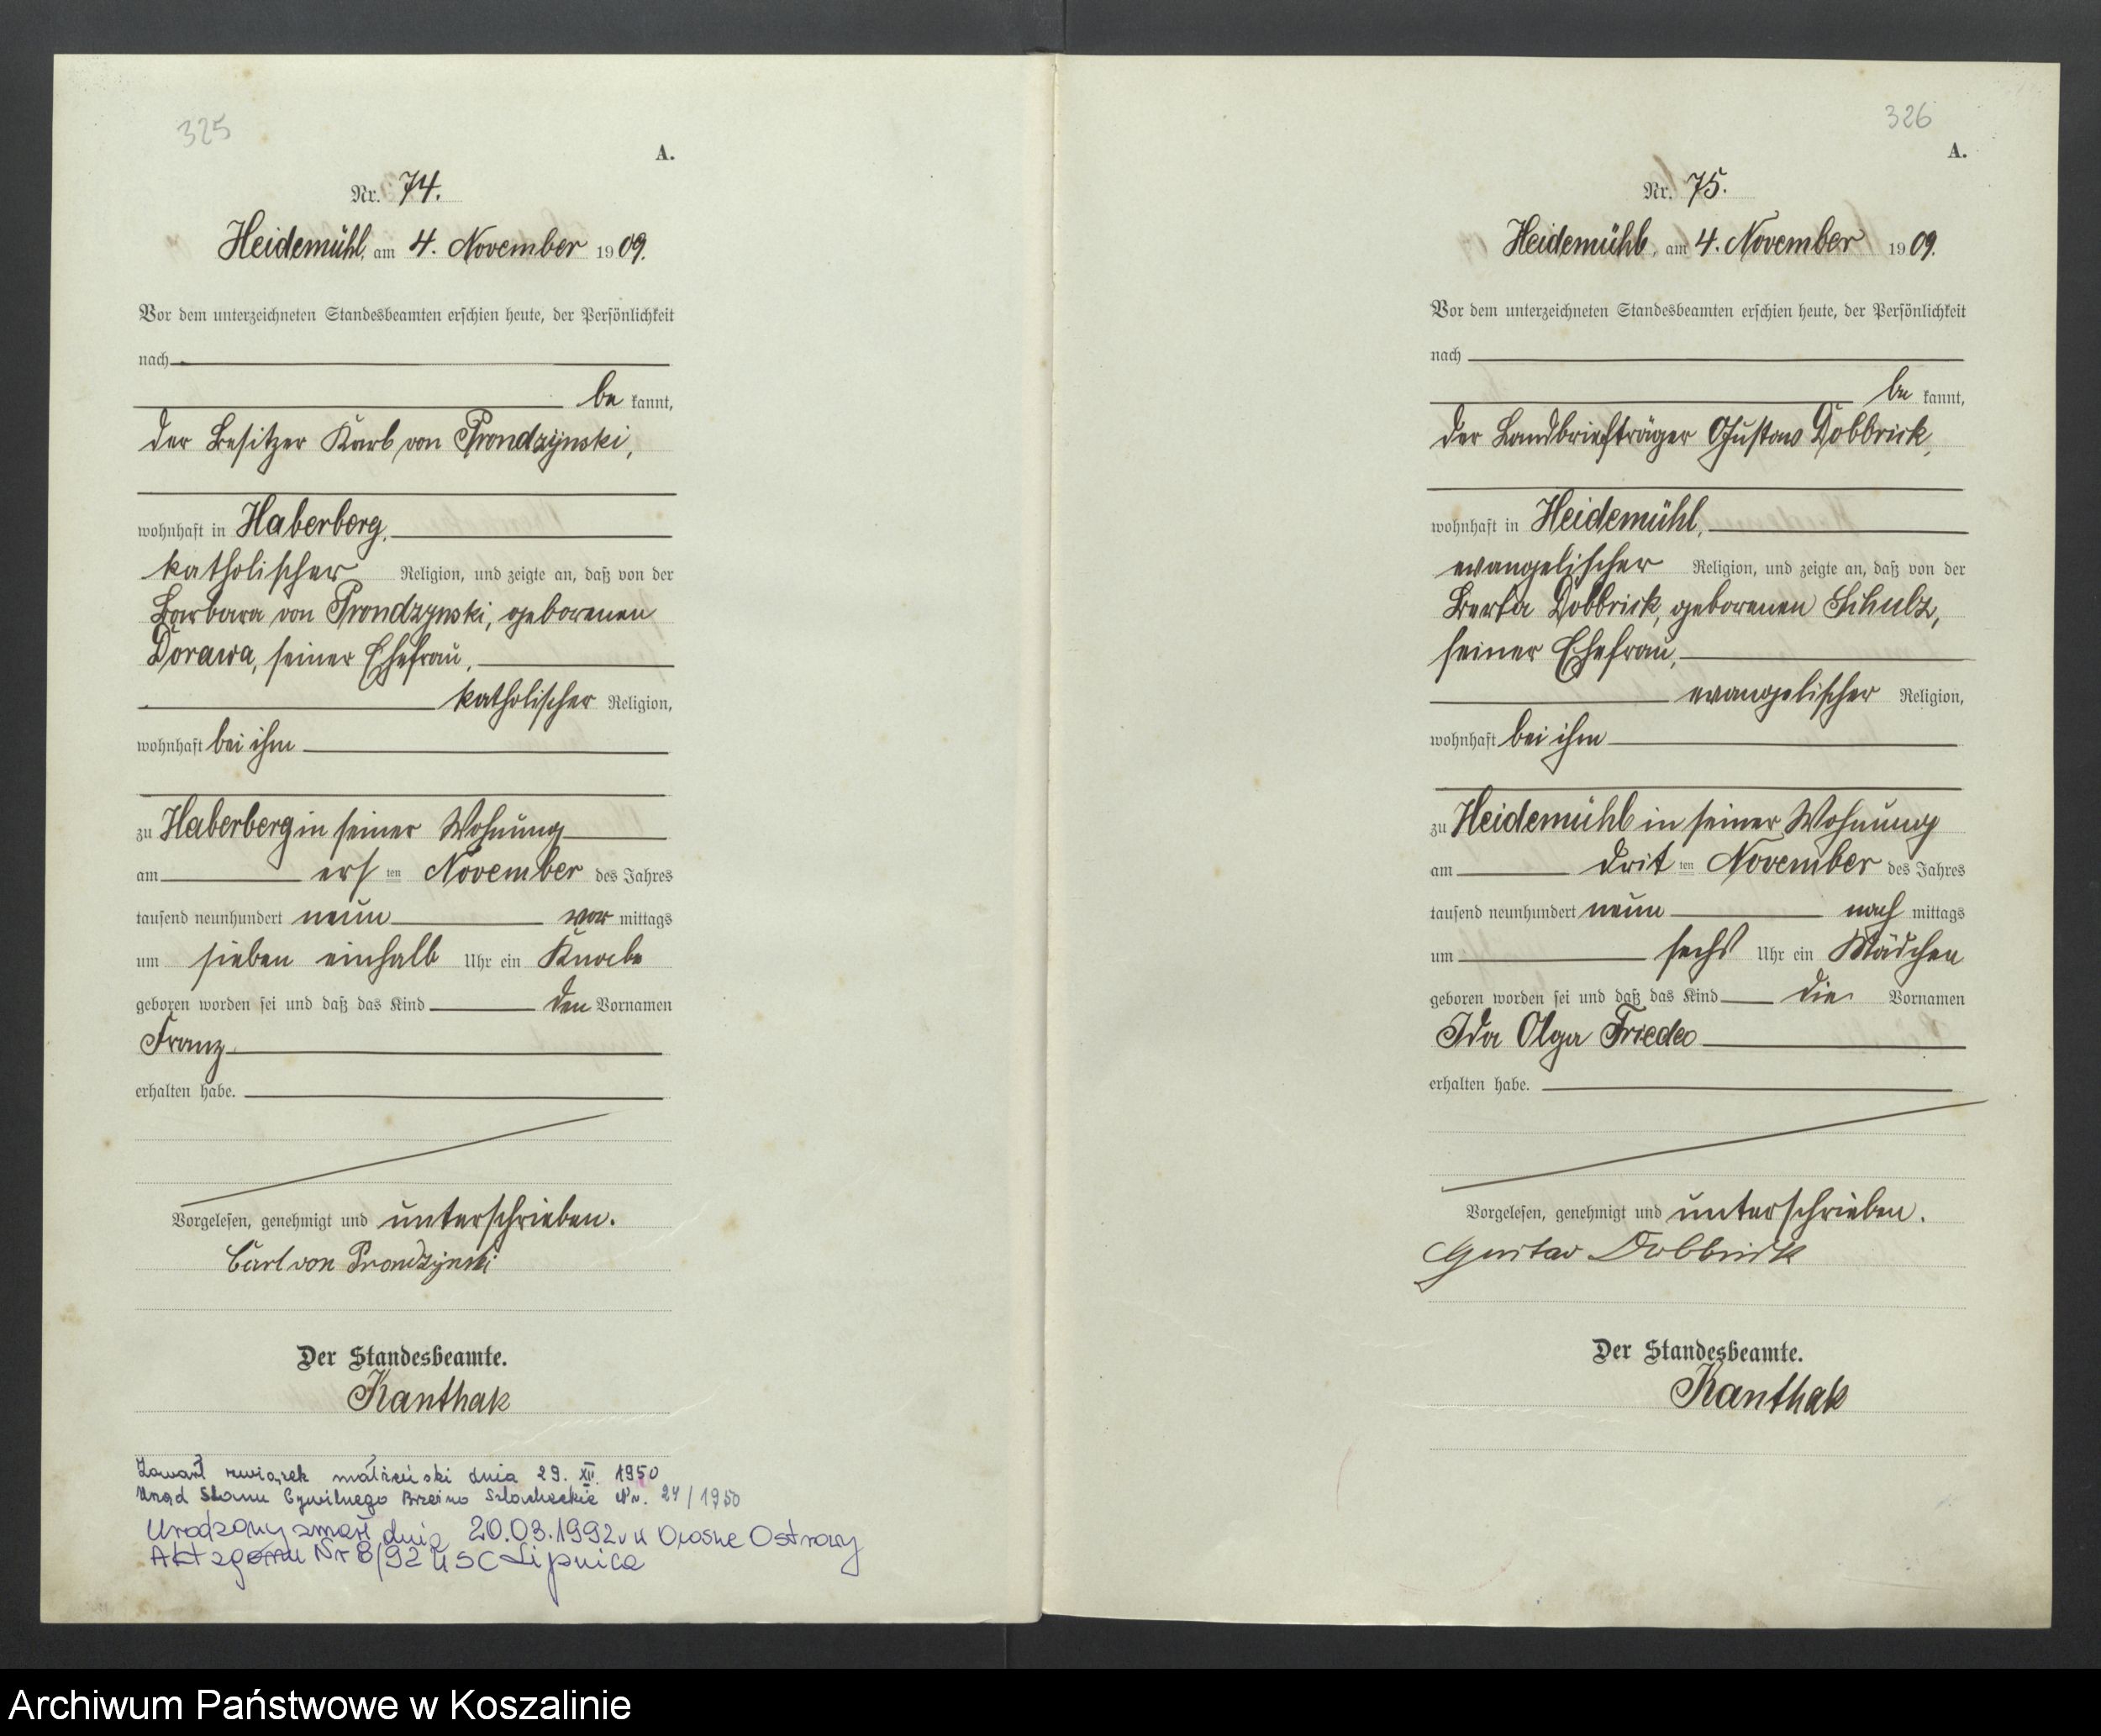 325
A.
Nr. 74.
Heidemühl, am 4. November 1909.
Vor dem unterzeichneten Standesbeamten erschien heute, der Persönlichkeit
nach
be kannt,
der Besitzer Karl von Prondzynski,
wohnhaft in Haberberg,
katholischer Religion, und zeigte an, daß von der
Barbara von Prondzynski, geborenen
Dorawa, seiner Ehefrau,
katholischer Religion,
wohnhaft bei ihm
zu Haberberg in seiner Wohnung
am ers ten November des Jahres
tausend neunhundert neun vor mittags
um sieben einhalb Uhr ein Knabe
geboren worden sei und daß das Kind den Vornamen
Franz
erhalten habe.
Vorgelesen, genehmigt und unterschrieben.
Carl von Prondzynski
Der Standesbeamte.
Kanthak
Zawarł związek małżeński dnia 29. XII. 1950
Urząd Stanu Cywilnego Brzeźno Szlacheckie Nr. 24/1950
Urodzony zmarł dnia 20.03.1992 w Ostrowy
Akt zgonu Nr 8/92 USC Lipnica
326
A.
Nr. 75.
Heidemühl, am 4. November 1909.
Vor dem unterzeichneten Standesbeamten erschien heute, der Persönlichkeit
nach
be kannt,
der Landbriefträger Gustav Dobbrick,
wohnhaft in Heidemühl,
evangelischer Religion, und zeigte an, daß von der
Berta Dobbrick, geborenen Schulz,
seiner Ehefrau,
evangelischer Religion,
wohnhaft bei ihm
zu Heidemühl in seiner Wohnung
am drit ten November des Jahres
tausend neunhundert neun nach mittags
um sechs Uhr ein Mädchen
geboren worden sei und daß das Kind die Vornamen
Ida Olga Frieda
erhalten habe.
Vorgelesen, genehmigt und unterschrieben.
Gustav Dobbrick
Der Standesbeamte.
Kanthak
Archiwum Państwowe w Koszalinie